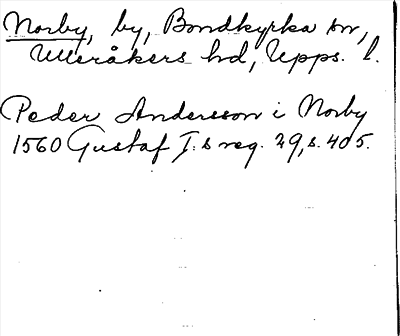 Norby, by, Bondkyrka sn,
Ulleråkers hd, Upps. l.
Peder Andersson i Norby
1560 Gustaf I:s reg. 29, s. 405.